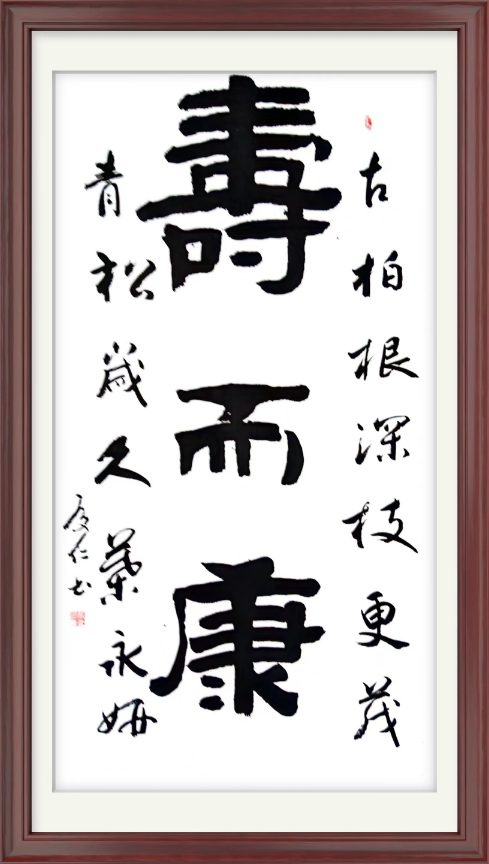 古柏根深枝更茂
壽而康
青松歲久葉永妍
仁书